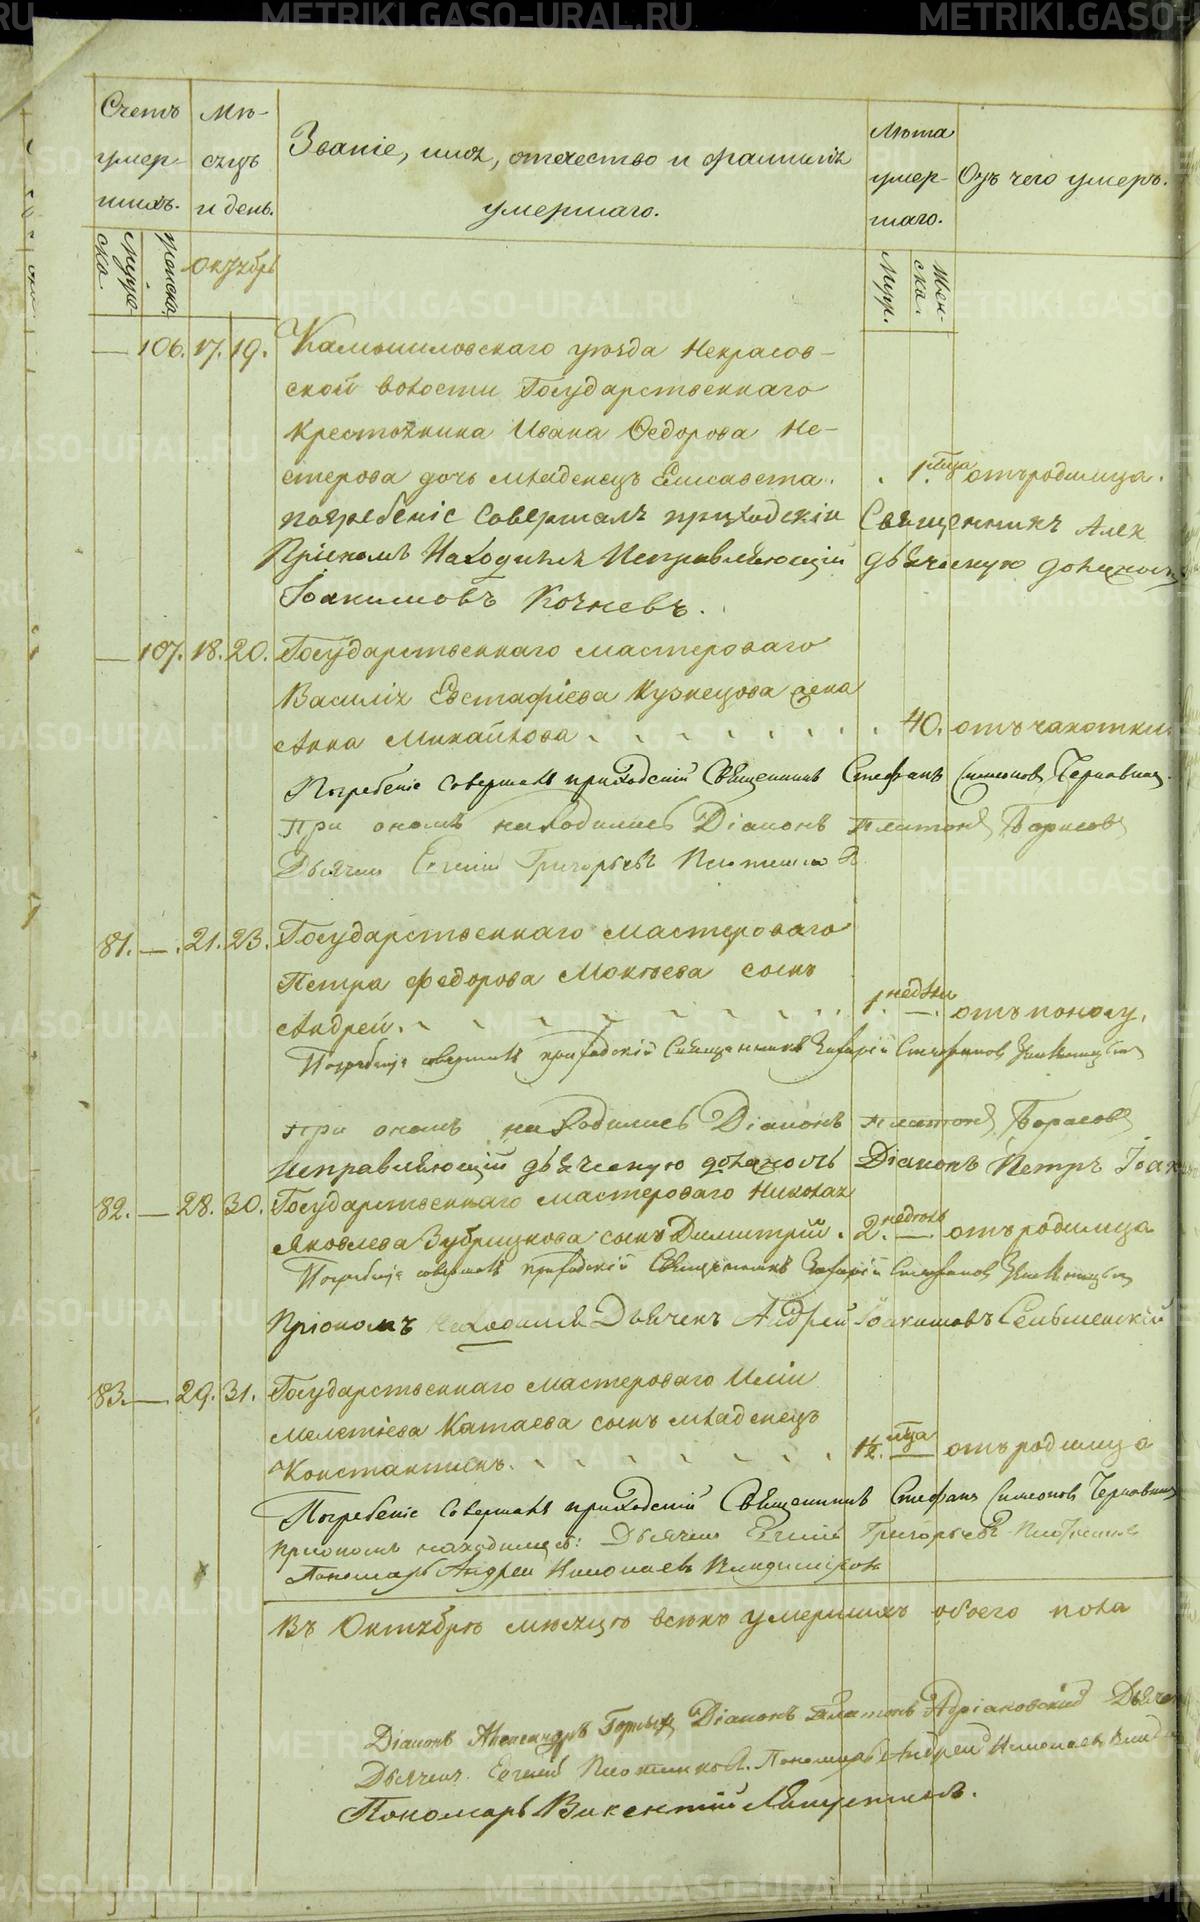 Счетъ умер- шихъ.
Мѣ- сяцъ и день.
Званіе, имя, отчество и фамилія
умершаго.
Лѣта умер- шаго.
Отъ чего умеръ.
мужеска.
женска.
Октябрь
Муж.
Жен- ска.
— 106. 17. 19. Камышловскаго уѣзда Некрасов-
ской волости Государственнаго
крестьянина Ивана Ѳедорова Не-
стерова дочь младенецъ Елисавета. 1 мца отъ родимца.
погребеніе совершалъ приходскій Священникъ Алек
При семъ находился Исправляющій дьяческую должность
Іоакимовъ Кочневъ.
— 107. 18. 20. Государственнаго мастероваго
Василія Евстафіева Кузнецова жена
Анна Михайлова 40. отъ чахотки
Погребеніе совершалъ приходскій Священникъ Стефанъ Симеоновъ
При ономъ находились Діаконъ Платонъ Борисовъ
Дьячекъ Евгеній Григорьевъ Плотниковъ
81. — 21. 23. Государственнаго мастероваго
Петра Федорова Мокѣева сынъ
Андрей. 1. недѣли — отъ поносу.
Погребеніе совершалъ приходскій Священникъ Захарій Стефановъ
При ономъ находились Діаконъ Платонъ Борисовъ
исправляющій дьяческую должность Діаконъ Петръ Іоак
82. — 28. 30. Государственнаго мастероваго Николая
Яковлева Зубрицкова сынъ Димитрій. 2. недѣль — отъ родимца
Погребеніе совершалъ приходскій Священникъ Захарій Стефановъ
При ономъ находился Дьячекъ Андрей Іоакимовъ Сельменскій
83. — 29. 31. Государственнаго мастероваго Иліи
Мелетіева Катаева сынъ младенецъ
Константинъ. 1½. мца — отъ родимца
Погребеніе совершалъ приходскій Священникъ Стефанъ Симеоновъ
При ономъ находились: Дьячекъ Евгеній Григорьевъ Плотниковъ
Пономарь Андрей Николаевъ Владиміровъ
Въ Октябрѣ мѣсяцѣ всѣхъ умершихъ обоего пола
Діаконъ Александръ Горныхъ Діаконъ Платонъ Адріановскій Дьяче
Дьячекъ Евгеній Плотниковъ. Пономарь Андрей Николаевъ Влад
Пономарь Викентій Ляпустинъ.
METRIKI.GASO-URAL.RU